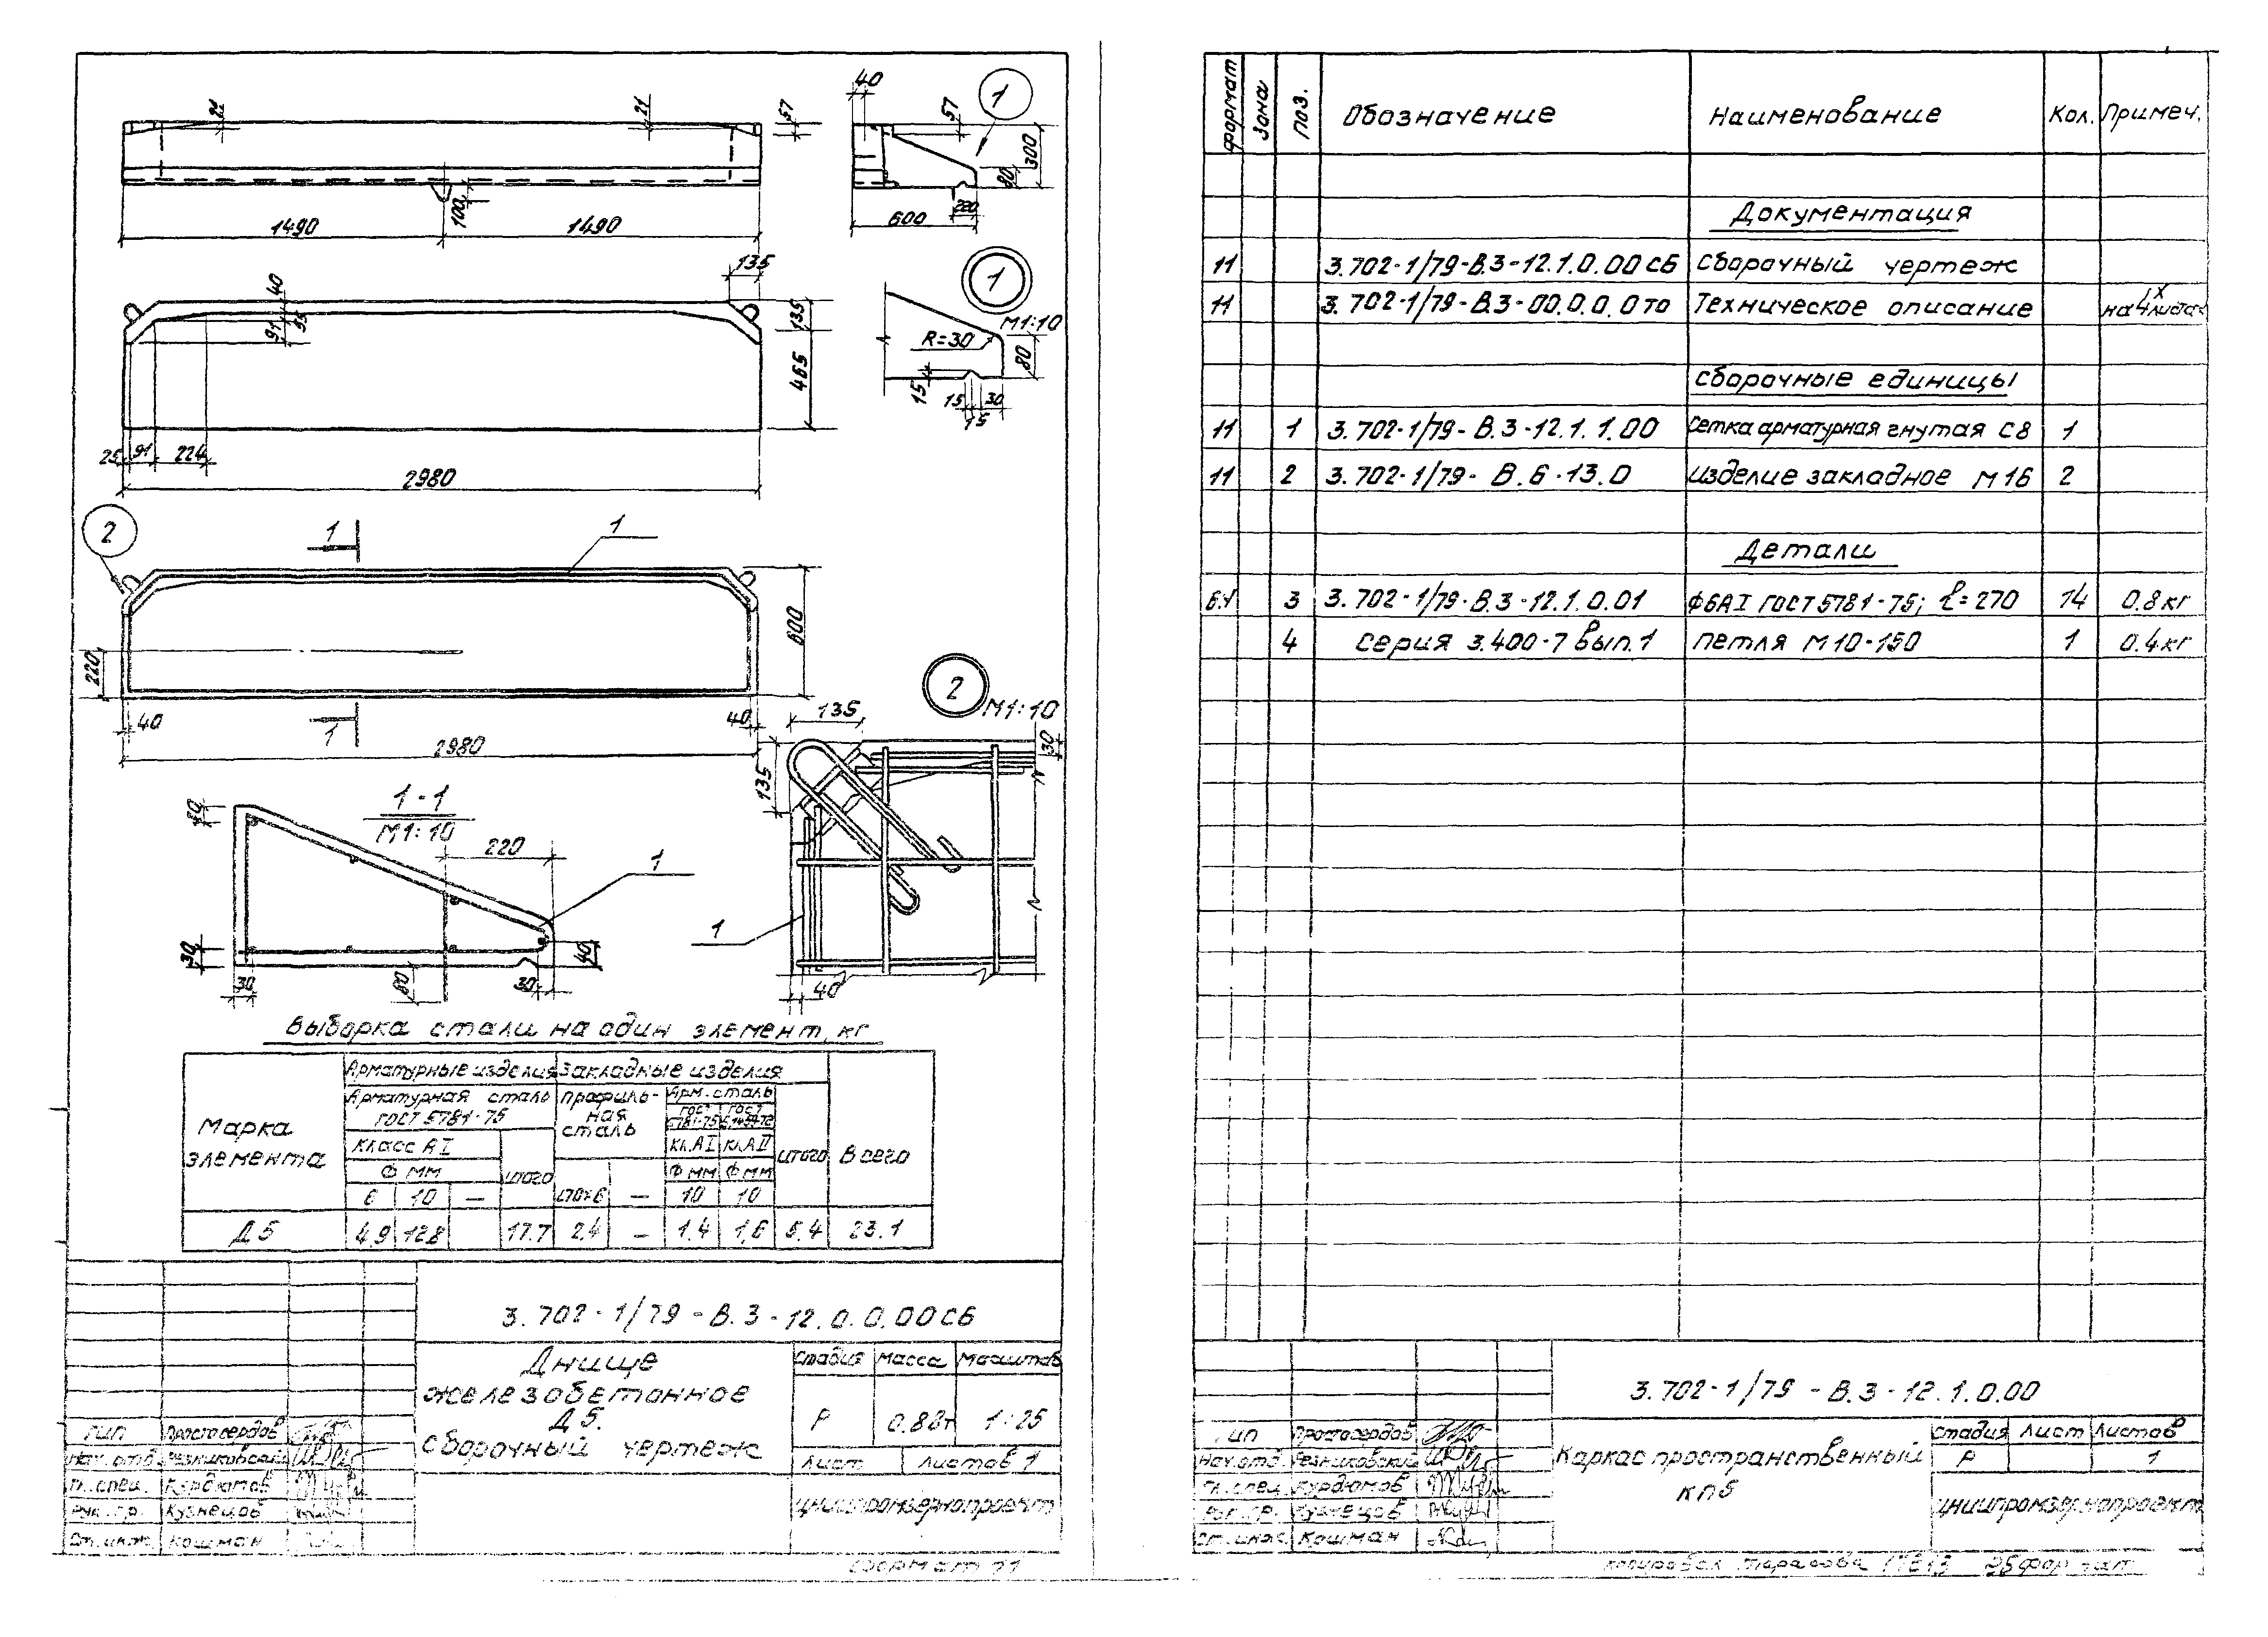 21
21
57
100
1490
1490
40
57
1
300
80
220
600
135
40
91
53
135
465
25
91
224
2980
1
М1:10
R=30
80
15
15
30
15
2
1
1
600
220
40
1
40
2980
2
М1:10
135
30
135
1
40
1-1
М1:10
220
1
30
30
80
30
40
Выборка стали на один элемент, кг
Марка элемента
Арматурные изделия
Закладные изделия
Арматурная сталь ГОСТ 5781-75
Профильная сталь
Арм. сталь
ГОСТ 5781-75
Класс АI
Кл.АI
Кл.АII
Итого
Всего
Ф мм
Итого
Ф мм
Ф мм
6 10 — — 10 10
Д5 4.9 12.8 17.7 2.4 — 1.4 1.6 5.4 23.1
3.702-1/79-В.3-12.0.0.00СБ
Днище
железобетонное
Д5.
Сборочный чертеж
Стадия Масса Масштаб
Р 1:25
Лист Листов 1
ЦНИИпромзернопроект
ГИП Простосердов
Нач.отд. Резниковский
Гл.спец. Курдюмов
Рук.гр. Кузнецов
Ст.инж. Кошман
Формат 11
Формат Зона Поз. Обозначение Наименование Кол. Примеч.
Документация
11 3.702-1/79-В.3-12.1.0.00СБ Сборочный чертеж
11 3.702-1/79-В.3-00.0.0.0ТО Техническое описание на 4х листах
Сборочные единицы
11 1 3.702-1/79-В.3-12.1.1.00 Сетка арматурная гнутая С8 1
11 2 3.702-1/79-В.6-13.0 Изделие закладное М16 2
Детали
Б.Ч 3 3.702-1/79-В.3-12.1.0.01 Ф6АI ГОСТ 5781-75; ℓ=270 14 0.8кг
4 Серия 3.400-7 вып.1 Петля М10-150 1 0.4кг
3.702-1/79-В.3-12.1.0.00
Каркас пространственный
КП6
Стадия Лист Листов
Р 1
ЦНИИпромзернопроект
ГИП Простосердов
Нач.отд. Резниковский
Гл.спец. Курдюмов
Рук.гр. Кузнецов
Ст.инж. Кошман
Копировал Тарасова